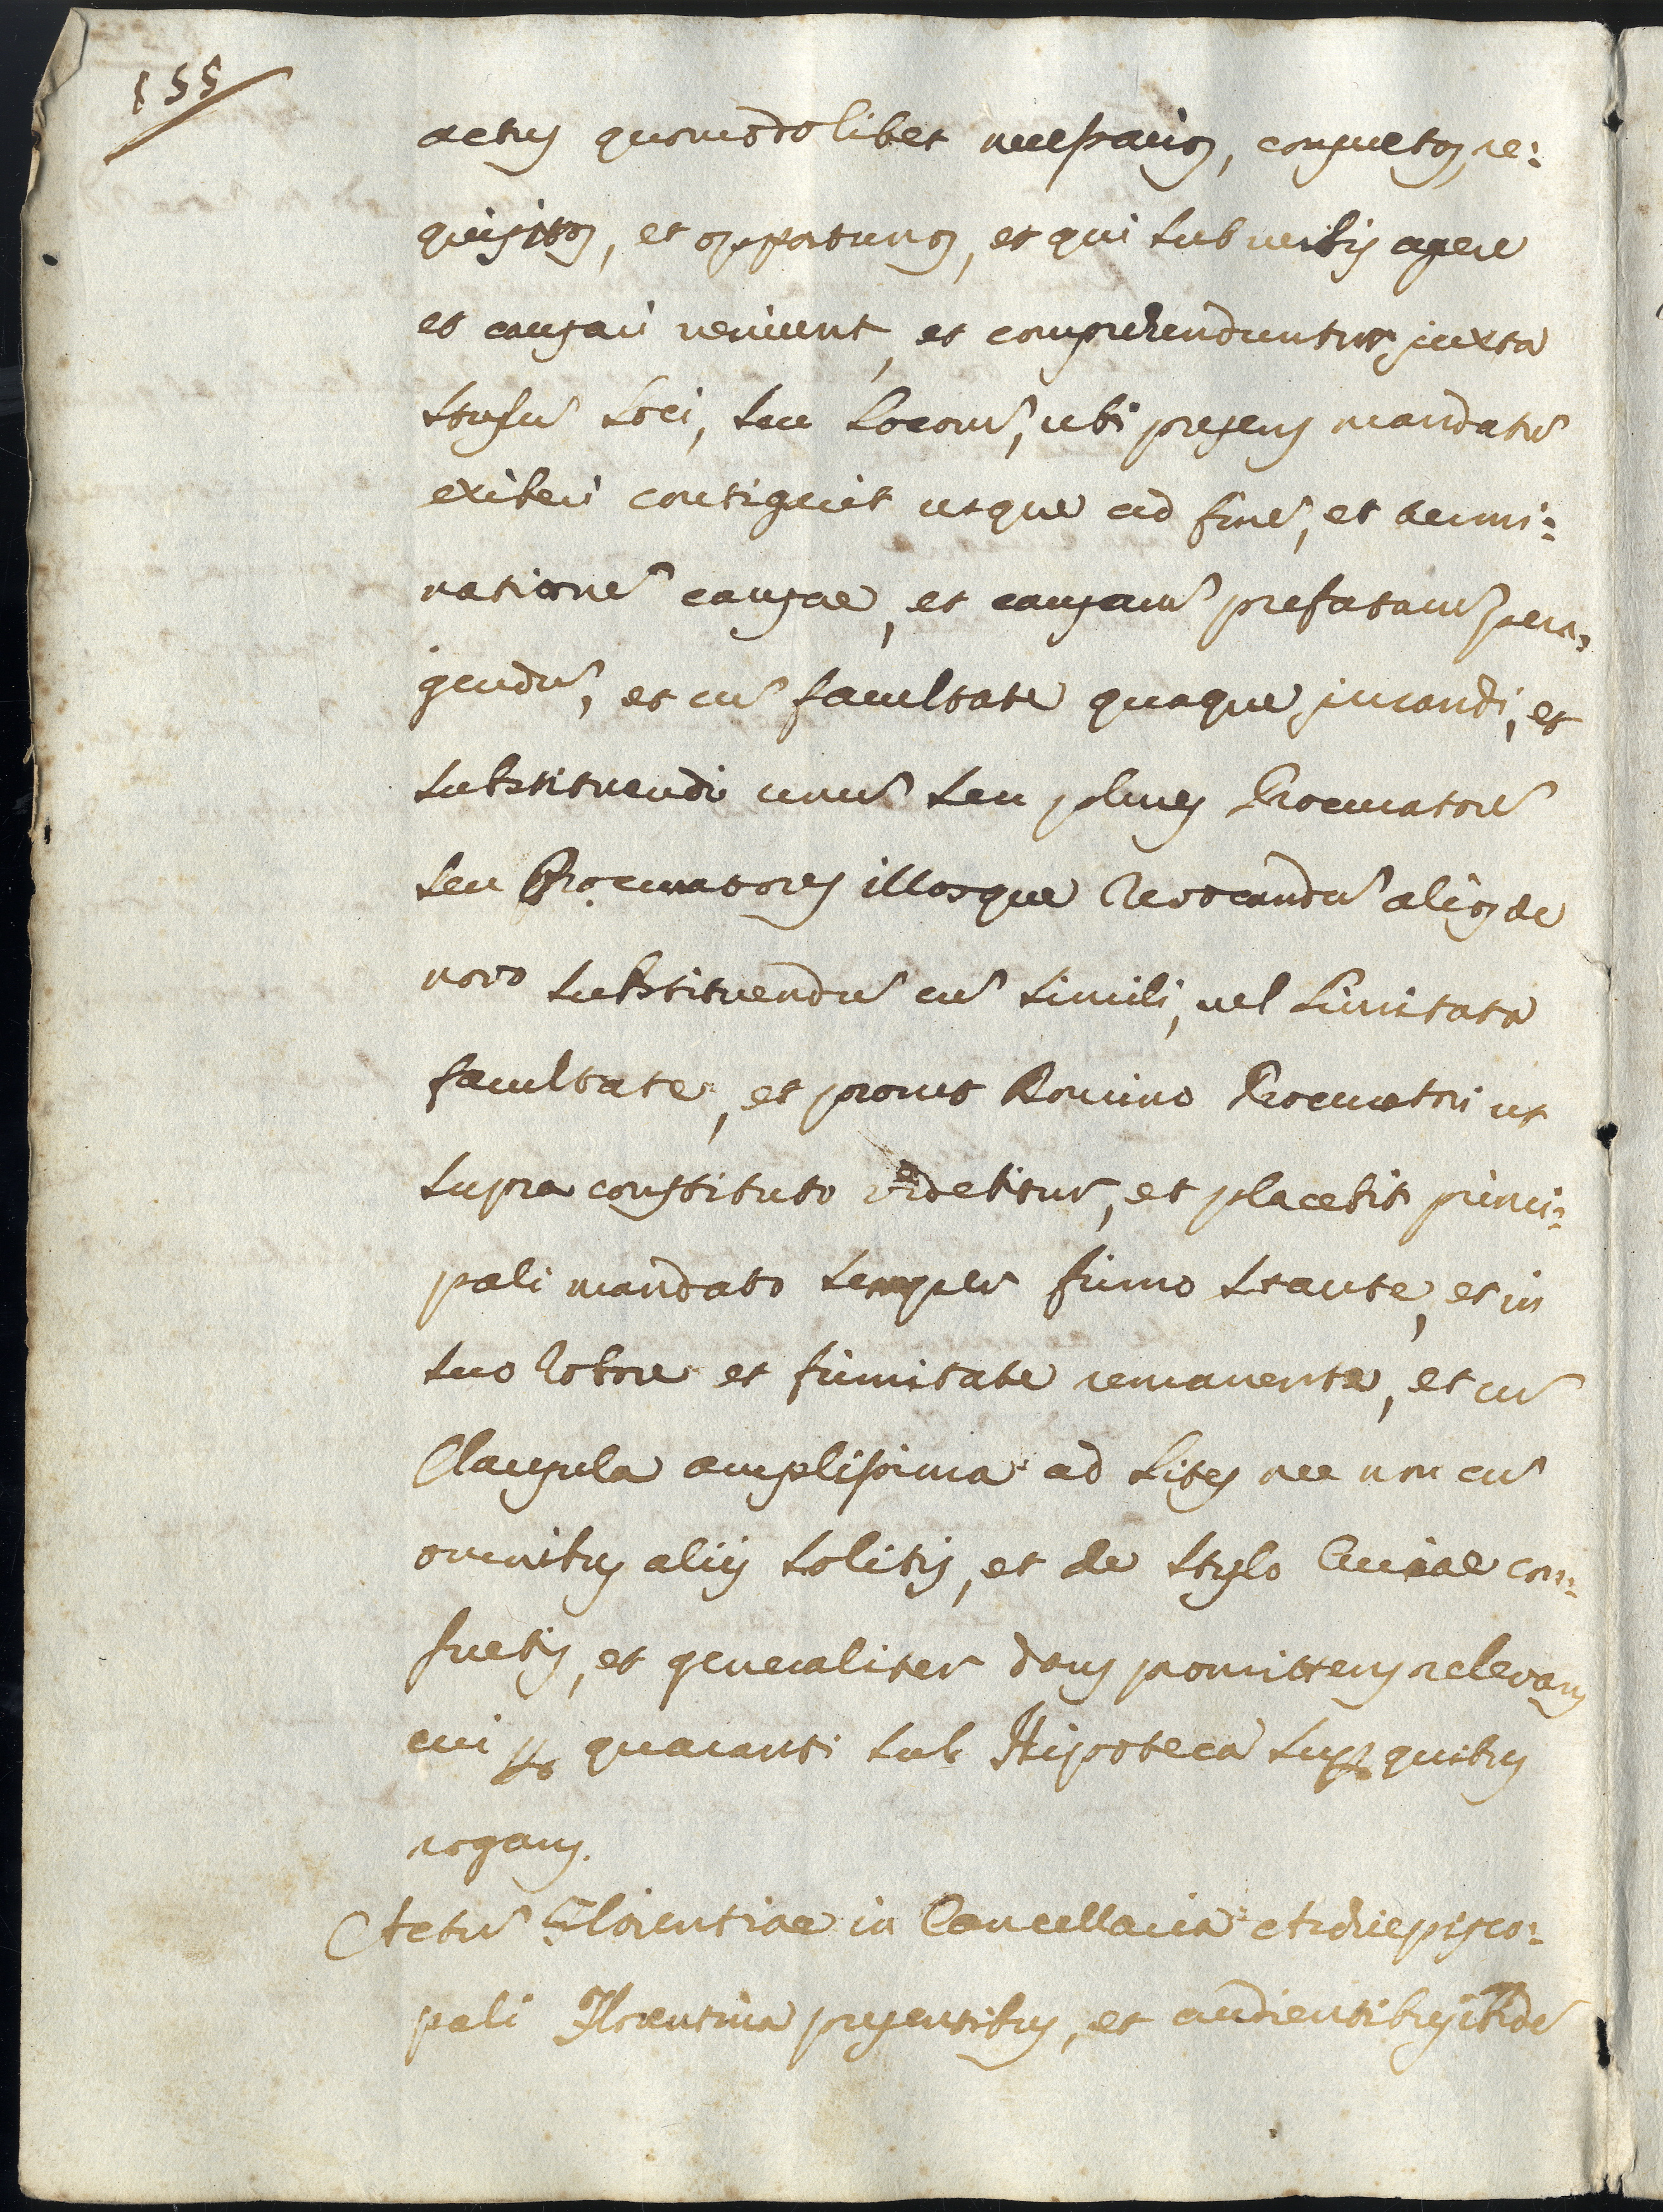 155
actus quomodolibet necessarios, consuetos, re:
quisitos, et opportunos, et qui sub verbis agere
et causari veniunt, et comprehenduntur juxta
stylũ Loci, seu Locorũ, ubi presens mandatũ
exiberi contigerit usque ad finẽ, et termi:
nationẽ causae, et causarũ prefatarũ pera:
gendũ, et cũ facultate quaque jurandi, et
substituendi unũ seu plures Procuratorẽ
seu Procuratores illosque revocandũ alios de
novo substituendũ cũ simili, vel Limitata
facultate, et prout Domino Procuratori ut
supra constituto videbitur, et placebit princi:
pali mandato semper firmo stante, et in
suo robore et firmitate remanente, et cũ
Clausula amplissima ad Lites nec non cũ
omnibus aliis solitis, et de stylo Curiae con:
suetis, et generaliter dans promittens relevans
cui pp quaranti sub Hipoteca supp quibus
rogans.
Actũ Florentiae in Cancellaria Archiepisco:
pali Florentina presentibus, et audientibus ibidẽ